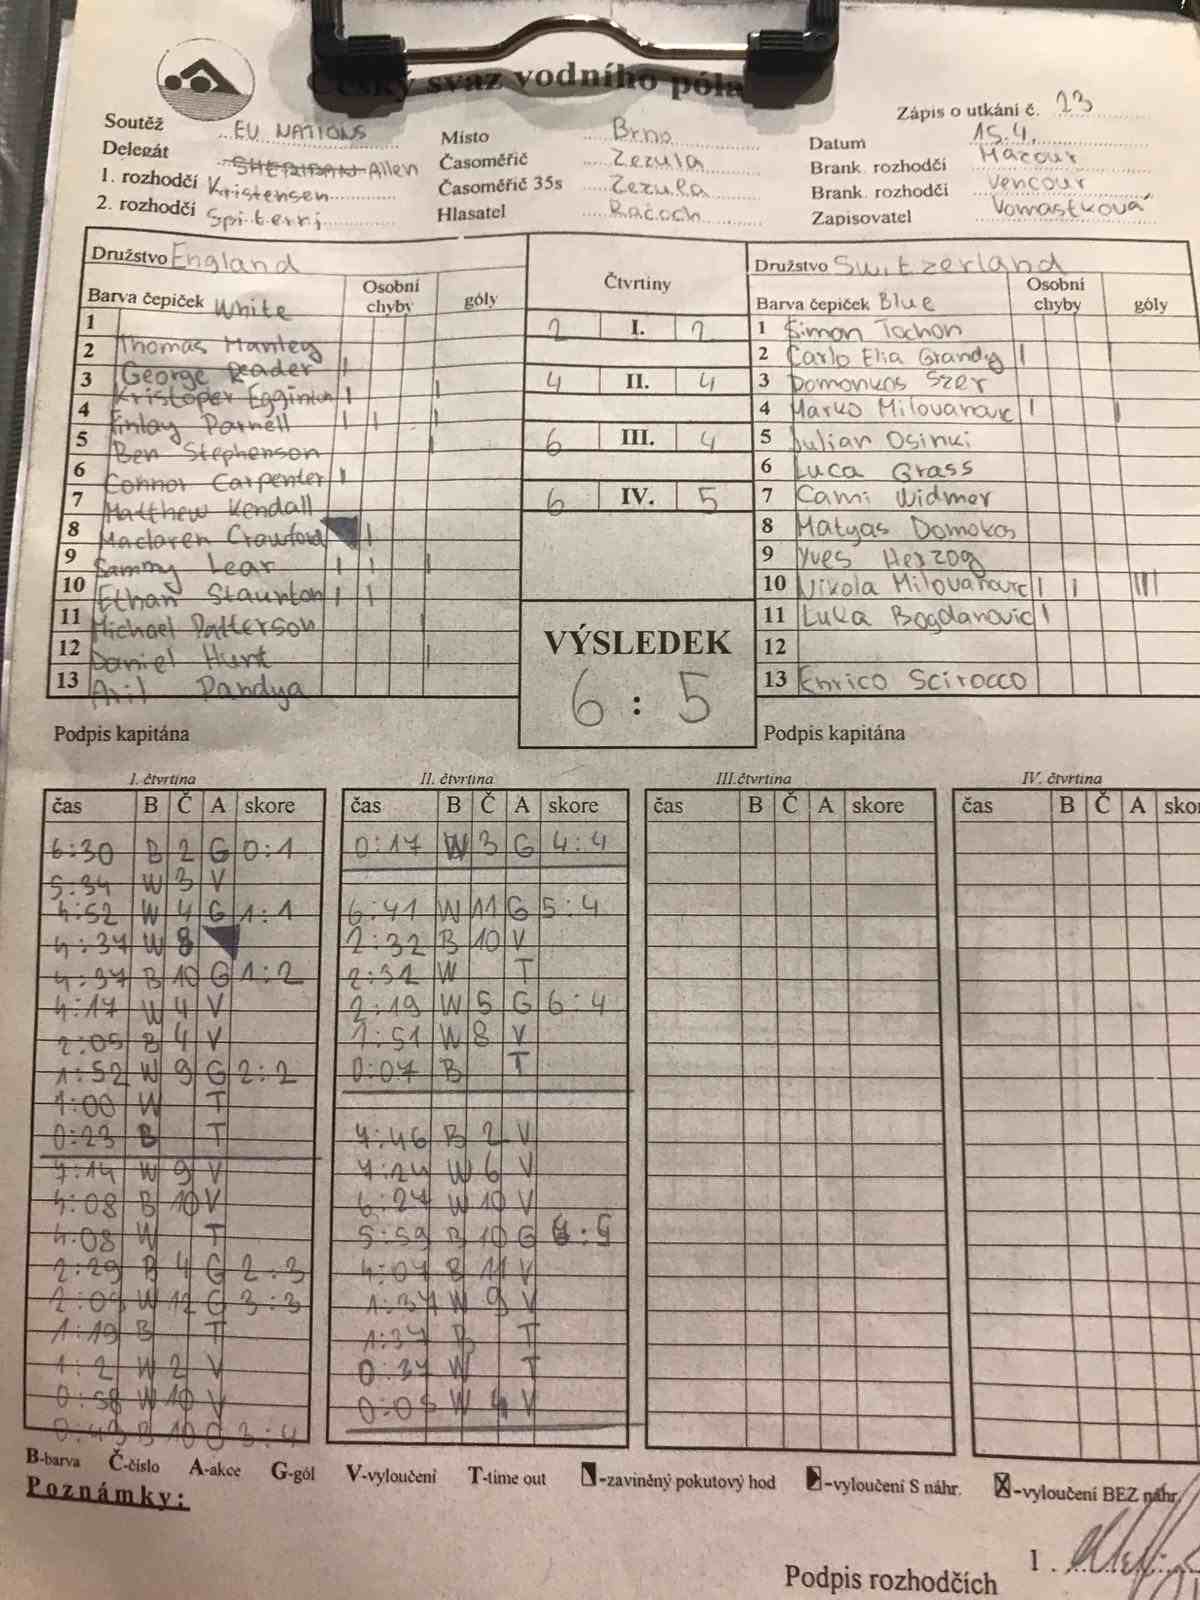 Český svaz vodního póla
Zápis o utkání č. 23
Soutěž EU NATIONS Místo Brno Datum 15.4.
Delegát Allen Časoměřič Zezula Brank. rozhodčí Mazour
1. rozhodčí Kristensen Časoměřič 35s Zezula Brank. rozhodčí Vencour
2. rozhodčí Spiterri Hlasatel Račoch Zapisovatel Vomastková
Družstvo England
Barva čepiček White Osobní chyby góly
1 Thomas Manley
2 George Reader
3 Kristoper Egginton
4 Finlay Parnell
5 Ben Stephenson
6 Connor Carpenter
7 Matthew Kendall
8 Maclaren Crawford
9 Sammy Lear
10 Ethan Staunton
11 Michael Patterson
12 Daniel Hunt
13 Aril Pandya
Podpis kapitána
Čtvrtiny
2 I. 2
4 II. 4
6 III. 4
6 IV. 5
VÝSLEDEK
6 : 5
Družstvo Switzerland
Barva čepiček Blue Osobní chyby góly
1 Simon Tochon
2 Carlo Elia Grandy
3 Domonkos Szer
4 Marko Milovanovic
5 Julian Osinki
6 Luca Grass
7 Cami Widmer
8 Matyas Domokos
9 Yves Herzog
10 Nikola Milovanovic
11 Luka Bogdanovic
12
13 Enrico Scirocco
Podpis kapitána
I. čtvrtina
čas B Č A skore
6:30 B 2 G 0:1
5:34 W 3 V
4:52 W 4 G 1:1
4:37 W 8
4:37 B 10 G 1:2
4:17 W 4 V
2:05 B 4 V
1:52 W 9 G 2:2
1:00 W T
0:23 B T
7:14 W 9 V
4:08 B 10 V
4:08 W T
2:29 B 4 G 2:3
2:09 W 12 G 3:3
1:19 B T
1:2 W 2 V
0:58 W 10 V
0:43 B 10 G 3:4
II. čtvrtina
čas B Č A skore
0:17 W 3 G 4:4
6:41 W 11 G 5:4
2:32 B 10 V
2:31 W T
2:19 W 5 G 6:4
1:51 W 8 V
0:07 B T
7:46 B 2 V
7:24 W 6 V
6:27 W 10 V
5:59 B 10 G 6:5
4:07 B 11 V
1:37 W 9 V
1:37 B T
0:37 W T
0:05 W 4 V
III.čtvrtina
čas B Č A skore
IV. čtvrtina
čas B Č A sko
B-barva Č-číslo A-akce G-gól V-vyloučení T-time out -zaviněný pokutový hod -vyloučení S náhr. -vyloučení BEZ náhr.
Poznámky:
Podpis rozhodčích 1.